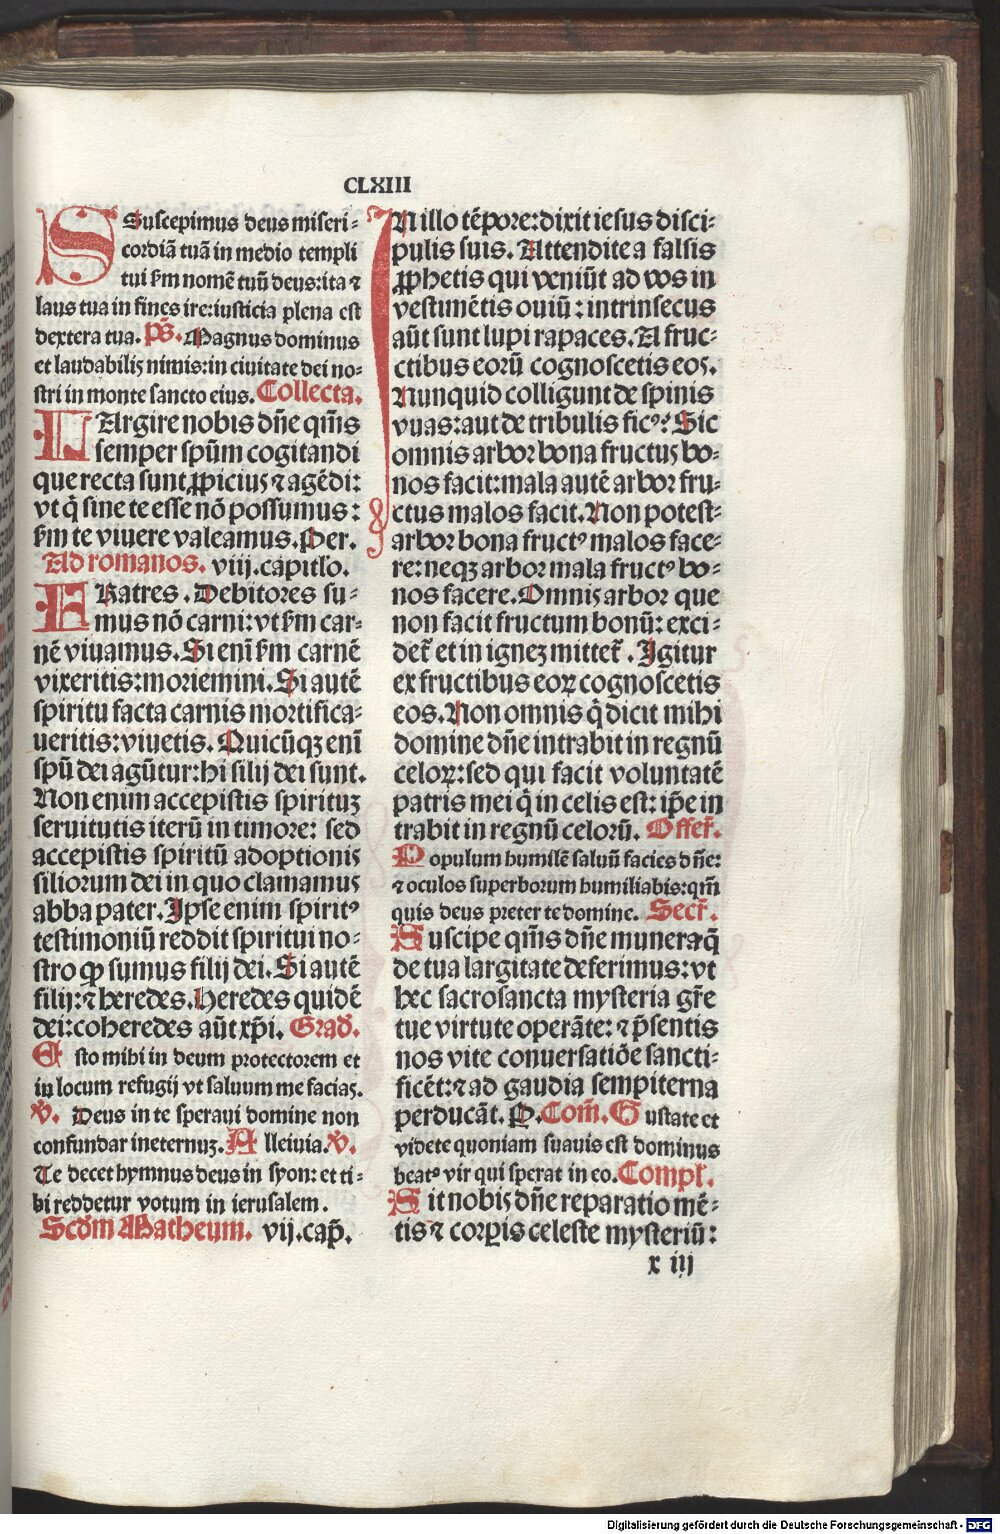 CLXIII
Suscepimus deus miseri-
cordiā tuā in medio templi
tui ẜm nomē tuū deus: ita ⁊
laus tua in fines ire: iusticia plena est
dextera tua. p̄s. Magnus dominus
et laudabilis nimis: in ciuitate dei no-
stri in monte sancto eius. Collecta.
LArgire nobis dn̄e qm̄s
semper spūm cogitandi
que recta sunt ꝓpicius ⁊ agēdi:
vt q̄ sine te esse nō possumus:
ẜm te viuere valeamus. Per.
Ad romanos. viij. capitlo.
FRatres. Debitores su-
mus nō carni: vt ẜm car-
nē viuamus. Si enī ẜm carnē
vixeritis: moriemini. Si autē
spiritu facta carnis mortifica-
ueritis: viuetis. Quicūqꝫ enī
spū dei agūtur: hi filij dei sunt.
Non enim accepistis spirituꝫ
seruitutis iterū in timore: sed
accepistis spiritū adoptionis
filiorum dei in quo clamamus
abba pater. Ipse enim spiritꝰ
testimoniū reddit spiritui no-
stro ꝙ sumus filij dei. Si autē
filij: ⁊ heredes. Heredes quidē
dei: coheredes aūt xp̄i. Grad̄.
Esto mihi in deum protectorem et
in locum refugij vt saluum me facias.
℣. Deus in te speraui domine non
confundar in eternuꝫ. Alleluia. ℣.
Te decet hymnus deus in syon: et ti-
bi reddetur votum in ierusalem.
Scd̄m Matheum. vij. cap̄.
IN illo tēpore: dixit iesus disci-
pulis suis. Attendite a falsis
ꝓphetis qui veniūt ad vos in
vestimētis ouiū: intrinsecus
aūt sunt lupi rapaces. A fru-
ctibus eorū cognoscetis eos.
Nunquid colligunt de spinis
vuas: aut de tribulis ficꝰ? Sic
omnis arbor bona fructus bo-
nos facit: mala autē arbor fru-
ctus malos facit. Non potest
arbor bona fructꝰ malos face-
re: neqꝫ arbor mala fructꝰ bo-
nos facere. Omnis arbor que
non facit fructum bonū: exci-
det̄ et in igneꝫ mittet̄. Igitur
ex fructibus eoꝝ cognoscetis
eos. Non omnis q̄ dicit mihi
domine dn̄e intrabit in regnū
celoꝝ: sed qui facit voluntatē
patris mei q̄ in celis est: ip̄e in
trabit in regnū celorū. Offer̄.
Populum humilē saluū facies dn̄e:
⁊ oculos superborum humiliabis: qm̄
quis deus preter te domine. Secr̄.
Suscipe qm̄s dn̄e munera q̄
de tua largitate deferimus: vt
hec sacrosancta mysteria gr̄e
tue virtute operāte: ⁊ p̄sentis
nos vite conuersatiōe sancti-
ficēt: ⁊ ad gaudia sempiterna
perducāt. P. Com̄. Gustate et
videte quoniam suauis est dominus
beatꝰ vir qui sperat in eo. Compl̄.
Sit nobis dn̄e reparatio mē-
tis ⁊ corꝑis celeste mysteriū:
x iij
Digitalisierung gefördert durch die Deutsche Forschungsgemeinschaft - DFG